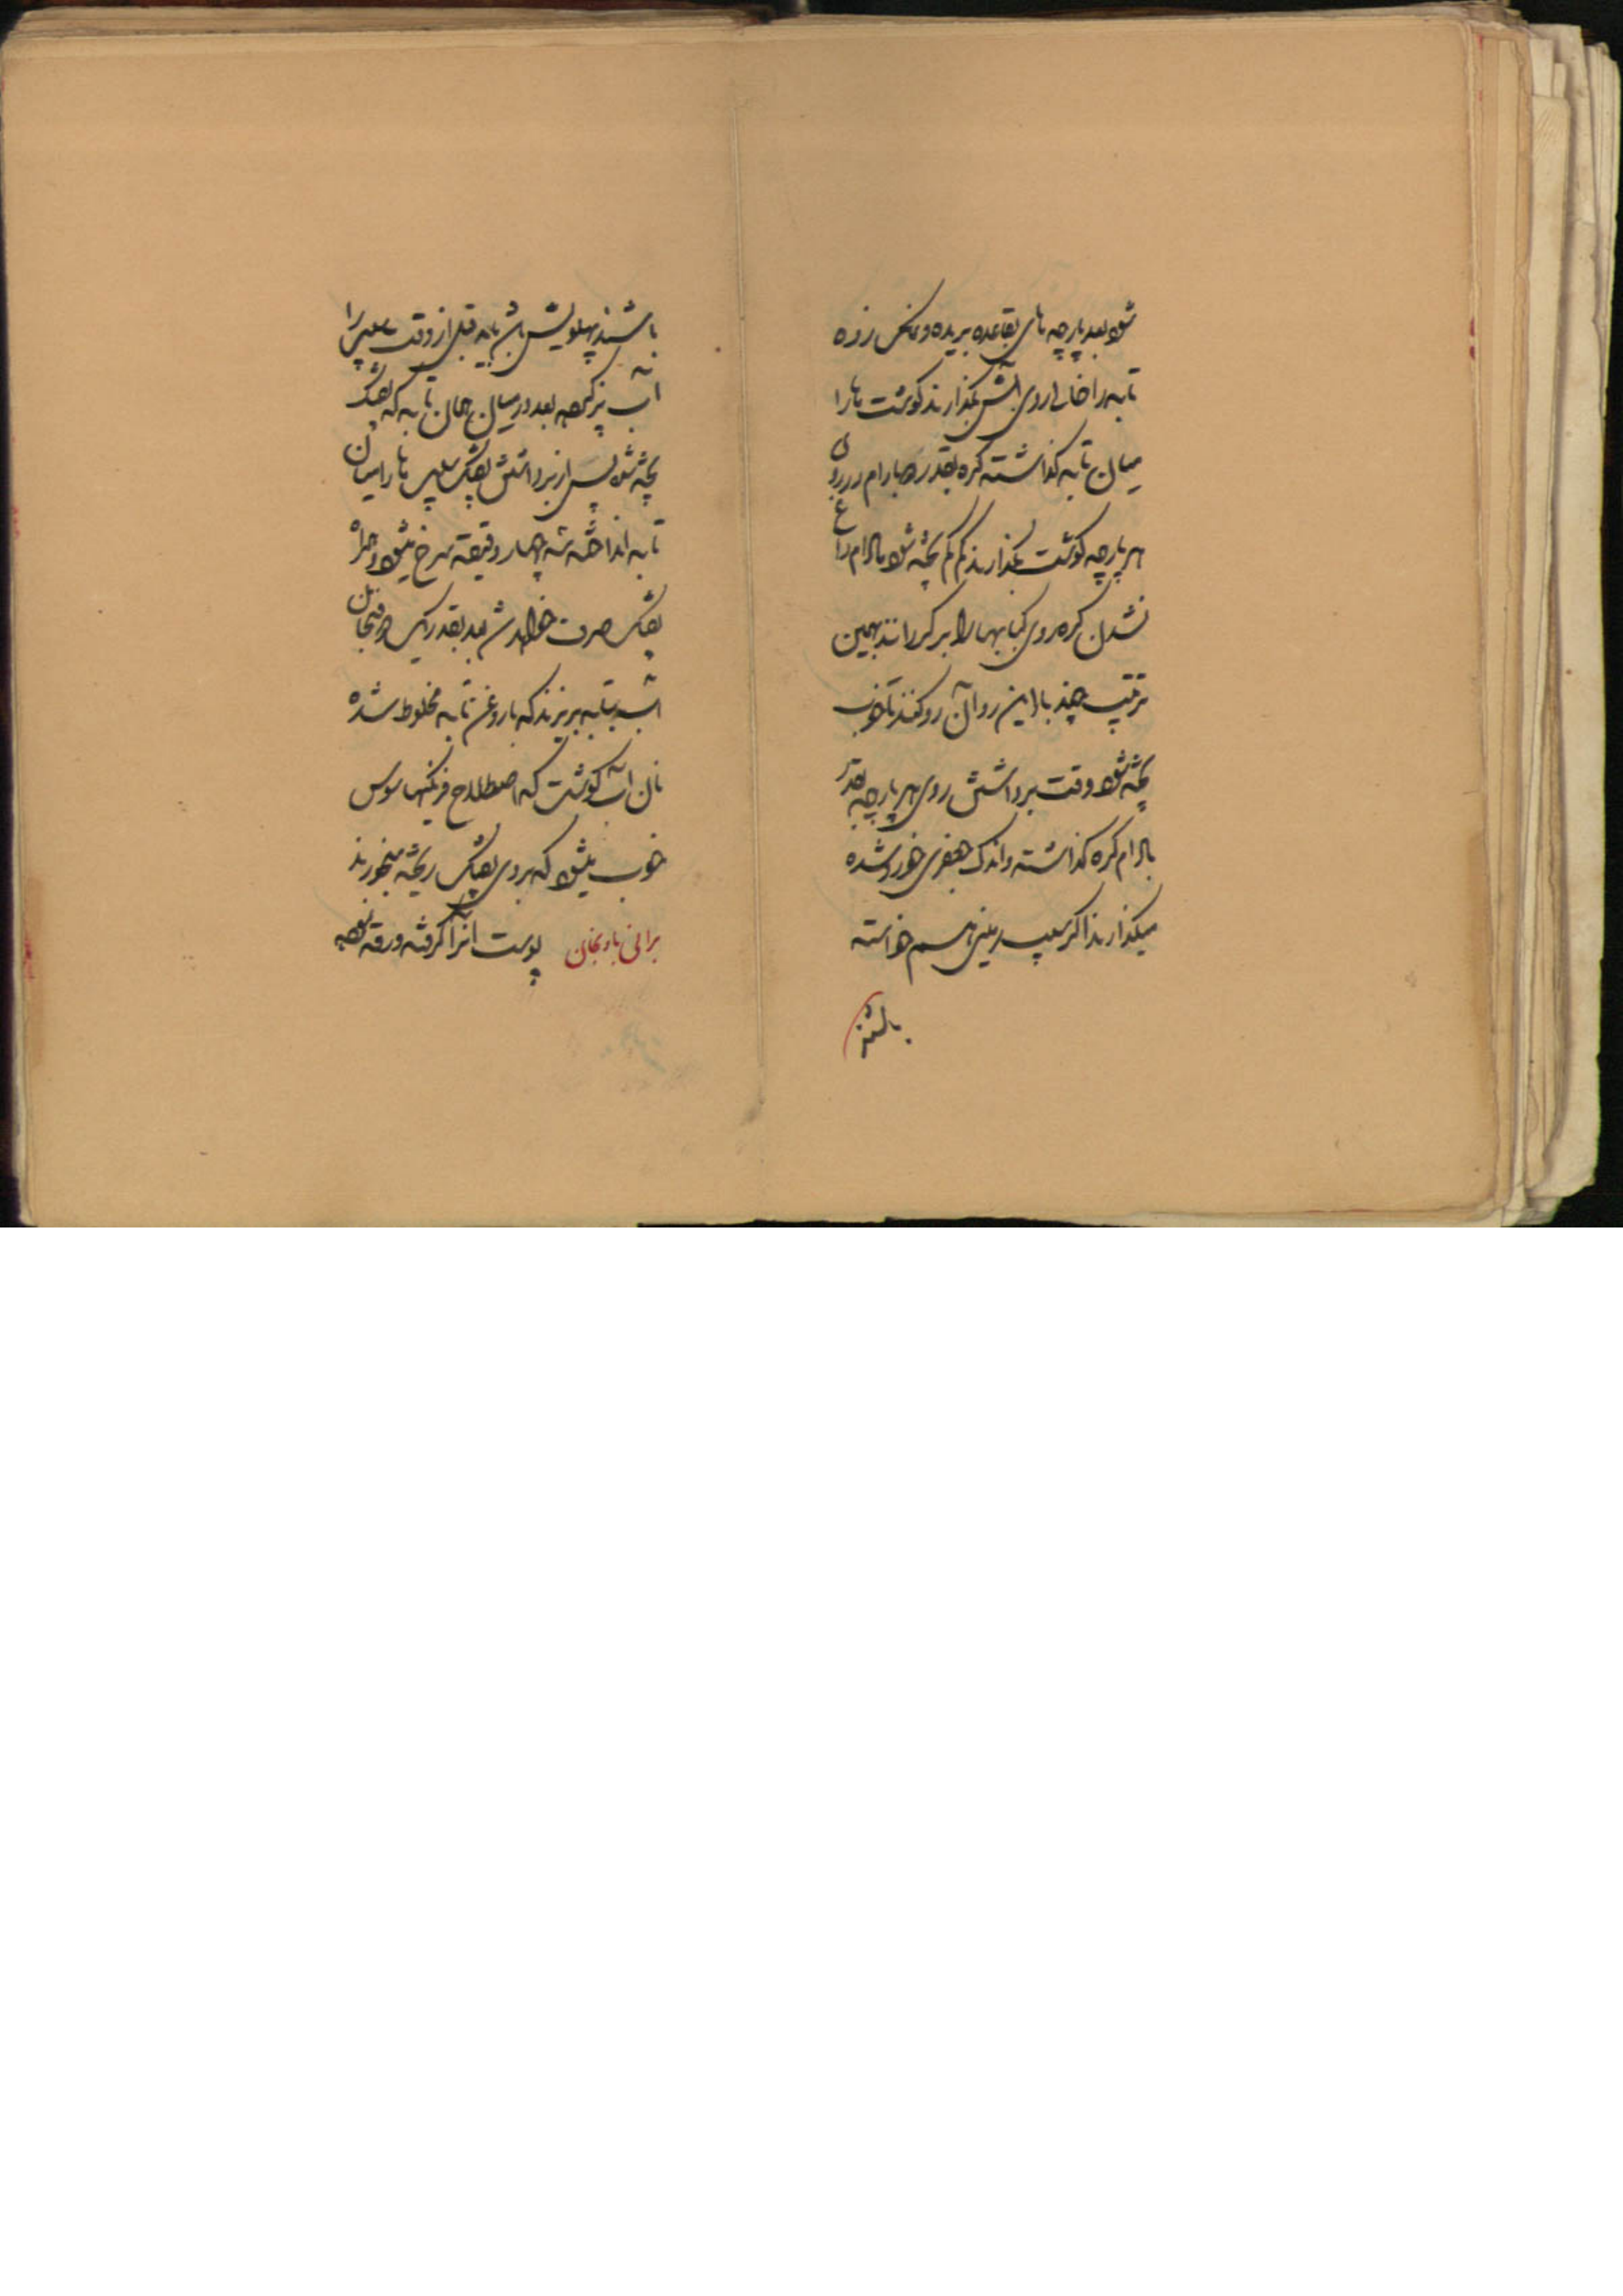 شود بعد پارچه های بقاعده بریده و نمک زده
تابه را خالی روی آتش بگذارند گوشت ها را
میان تابه گذاشته کره بقدر بادام در روی
هر پارچه گوشت بگذارند کم کم پخته شود بادام را
نشدن کره روی کبابها را برگردانند بهمین
ترتیب چند بار این رو آن رو کنند تا خوب
پخته شود وقت برداشتن روی هر پارچه بقدر
بادام کره گذاشته و اندک جعفری خورد شده
میگذارند اگر سیب زمینی هم خواسته
باشند
باشند پهلویش باشد باید قبل از وقت سیب را
آب پز کرده بعد در میان همان تابه که بفتک
پخته شده پس از برداشتن بفتک سیب ها را میان
تابه انداخته سه چهار دقیقه سرخ میشود و همراه
بفتک صرف خواهد شد بعد بقدر یک دو فنجان
آب بتابه بریزند که با روغن تابه مخلوط شده
نان آب گوشت که اصطلاح فرنگیها سوس
خوب میشود که بروی بفتک ریخته میخورند
برانی بادنجان پوست آنرا گرفته ورقه نموده